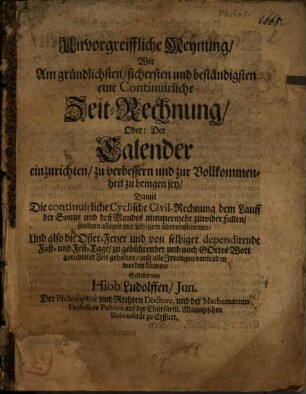 Unvorgreiffliche Meynung/
Wie
Am gründlichsten/sichersten und beständigsten
eine Continuirliche
Zeit-Rechnung/
Oder: Der
Calender
einzurichten/zu verbessern und zur Vollkommen-
heit zu bringen sey/
Damit
Die continuirliche Cyclische Civil-Rechnung dem Lauff
der Sonne und deß Mondes nimmermehr zuwider fallen/
sondern allezeit mit selbigem übereinstimmen/
Und also die Oster-Feyer und von selbiger dependirende
Fast- und Fest-Tage/ zu gebührender und nach GOttes Wort
gerichteter Zeit gehalten/ und alle Irrungen vermieden
werden können/
Gestellet von
Hiob Ludolffen/ Jun.
Der Philosophiæ und Rechten Doctore, und der Mathematum
Professore Publico auf der Churfürstl. Mayntzischen
Universität zu Erffurt.